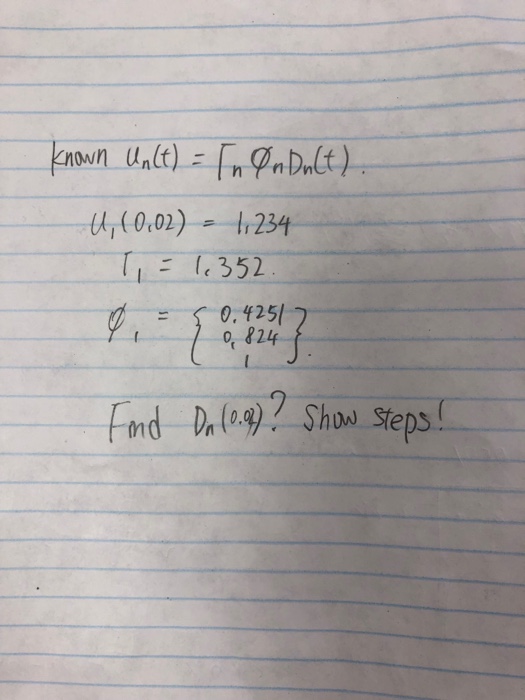 known Un(t) = Γn ϕn Dn(t).
U1(0.02) = 1.234
Γ1 = 1.352.
ϕ1 = { 0.4251
0.824
1 }.
Find Dn(0.02)? Show steps!